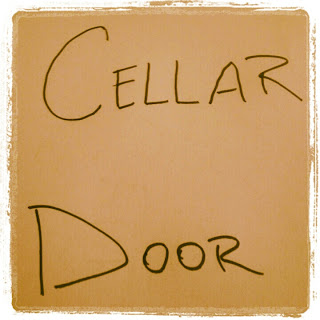 CELLAR
DOOR